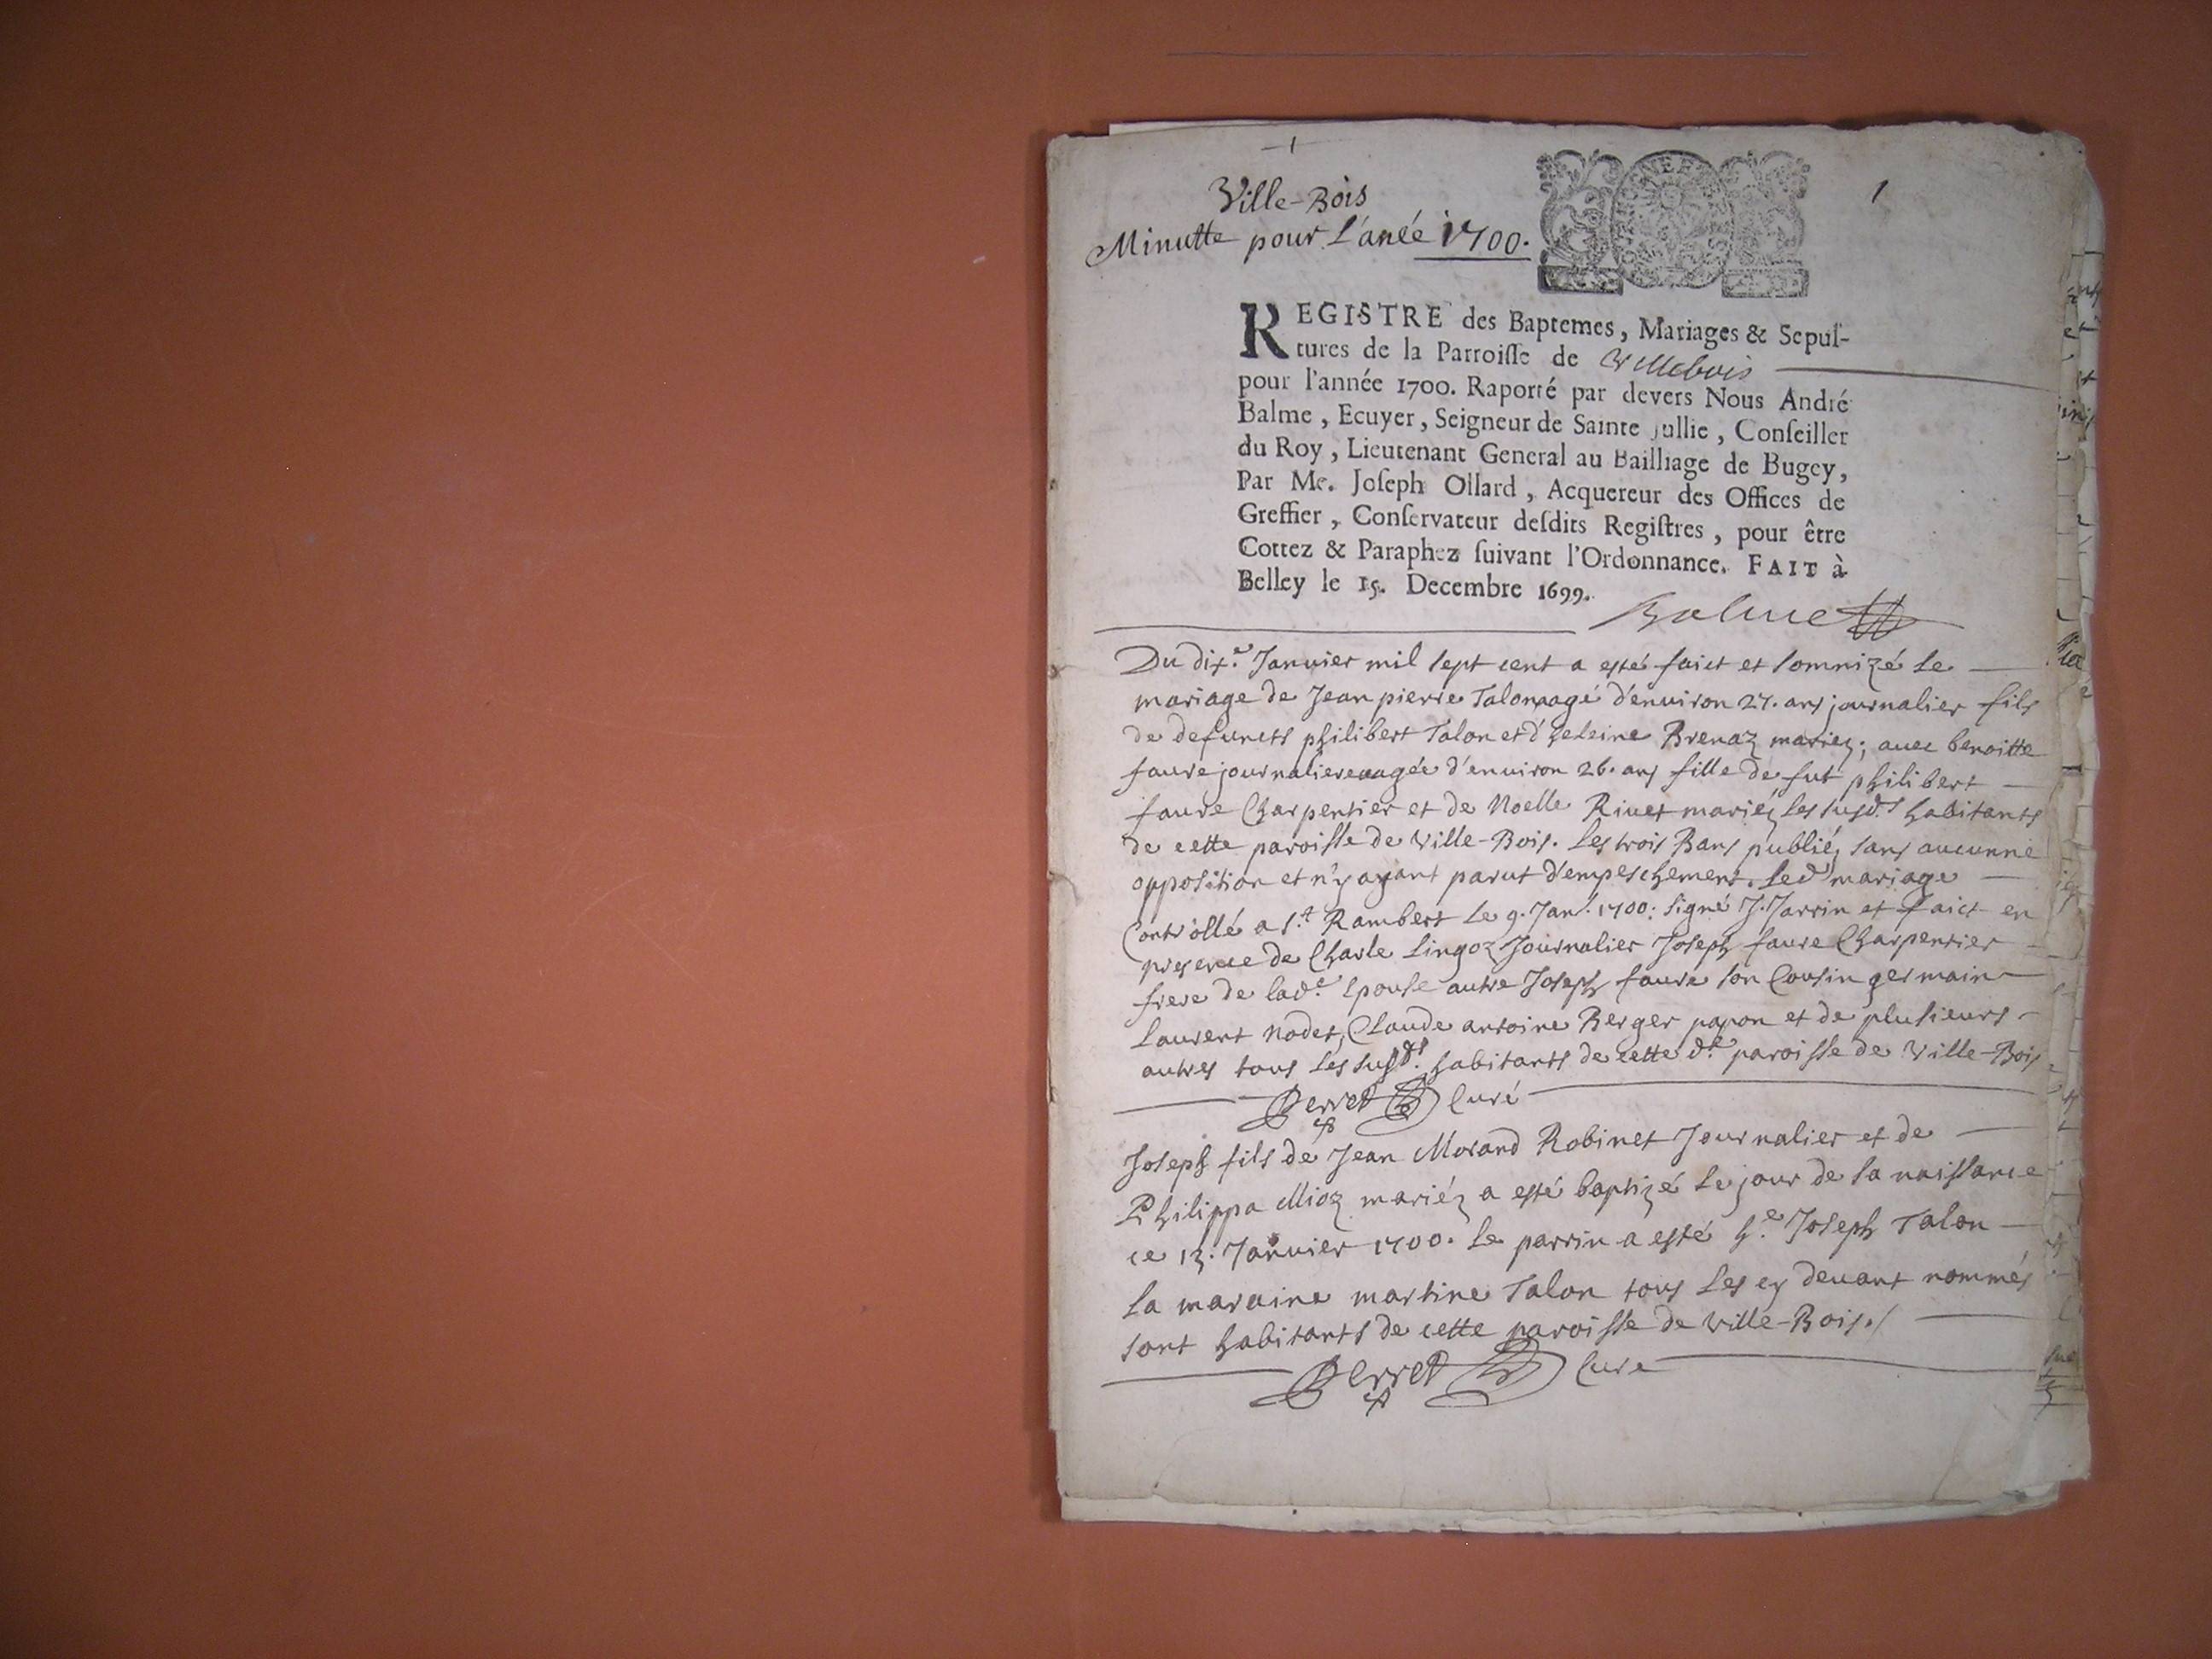 1
Ville-Bois
Minutte pour l'aneé 1700.
REGISTRE des Baptemes, Mariages & Sepul-
tures de la Parroisse de Villebois
pour l'année 1700. Raporté par devers Nous André
Balme, Ecuyer, Seigneur de Sainte Jullie, Conseiller
du Roy, Lieutenant General au Bailliage de Bugey,
Par Me. Joseph Ollard, Acquereur des Offices de
Greffier, Conservateur desdits Registres, pour être
Cottez & Paraphez suivant l'Ordonnance. FAIT à
Belley le 15. Decembre 1699.
Balme
Du dix.e Janvier mil sept cent a esté faict et somnizé le
mariage de Jean pierre Talon aagé d'environ 27. ans journalier fils
de defuncts philibert Talon et d'heleine Brenaz mariez; avec benoitte
faure journaliere aagée d'environ 26. ans fille de fut philibert
faure Charpentier et de Noelle Rivet mariez les susd.ts habitants
de cette paroisse de Ville-Bois. Les trois Bans publiéz sans aucunne
opposition et n'y ayant parut d'empeschement. Led mariage
Controllé a s.t Rambert le 9. Jan.r 1700: signé J. Jarrin et faict en
presence de Charle Lingoz Journalier Joseph faure Charpentier
frere de lad.e Epouse autre Joseph faure son Cousin germain
Laurent Nodet, Claude antoine Berger papon et de plusieurs
autres tous les susd.ts habitants de cette d.e paroisse de Ville-Bois
Perret Curé
Joseph fils de Jean Morand Robinet Journalier et de
Philippa Mioz mariéz a esté baptizé le jour de sa naissance
ce 13. Janvier 1700. Le parrin a esté h.e Joseph Talon
La maraine martine Talon tous les cy devant nommés
sont habitants de cette paroisse de Ville-Bois./
Perret Cure